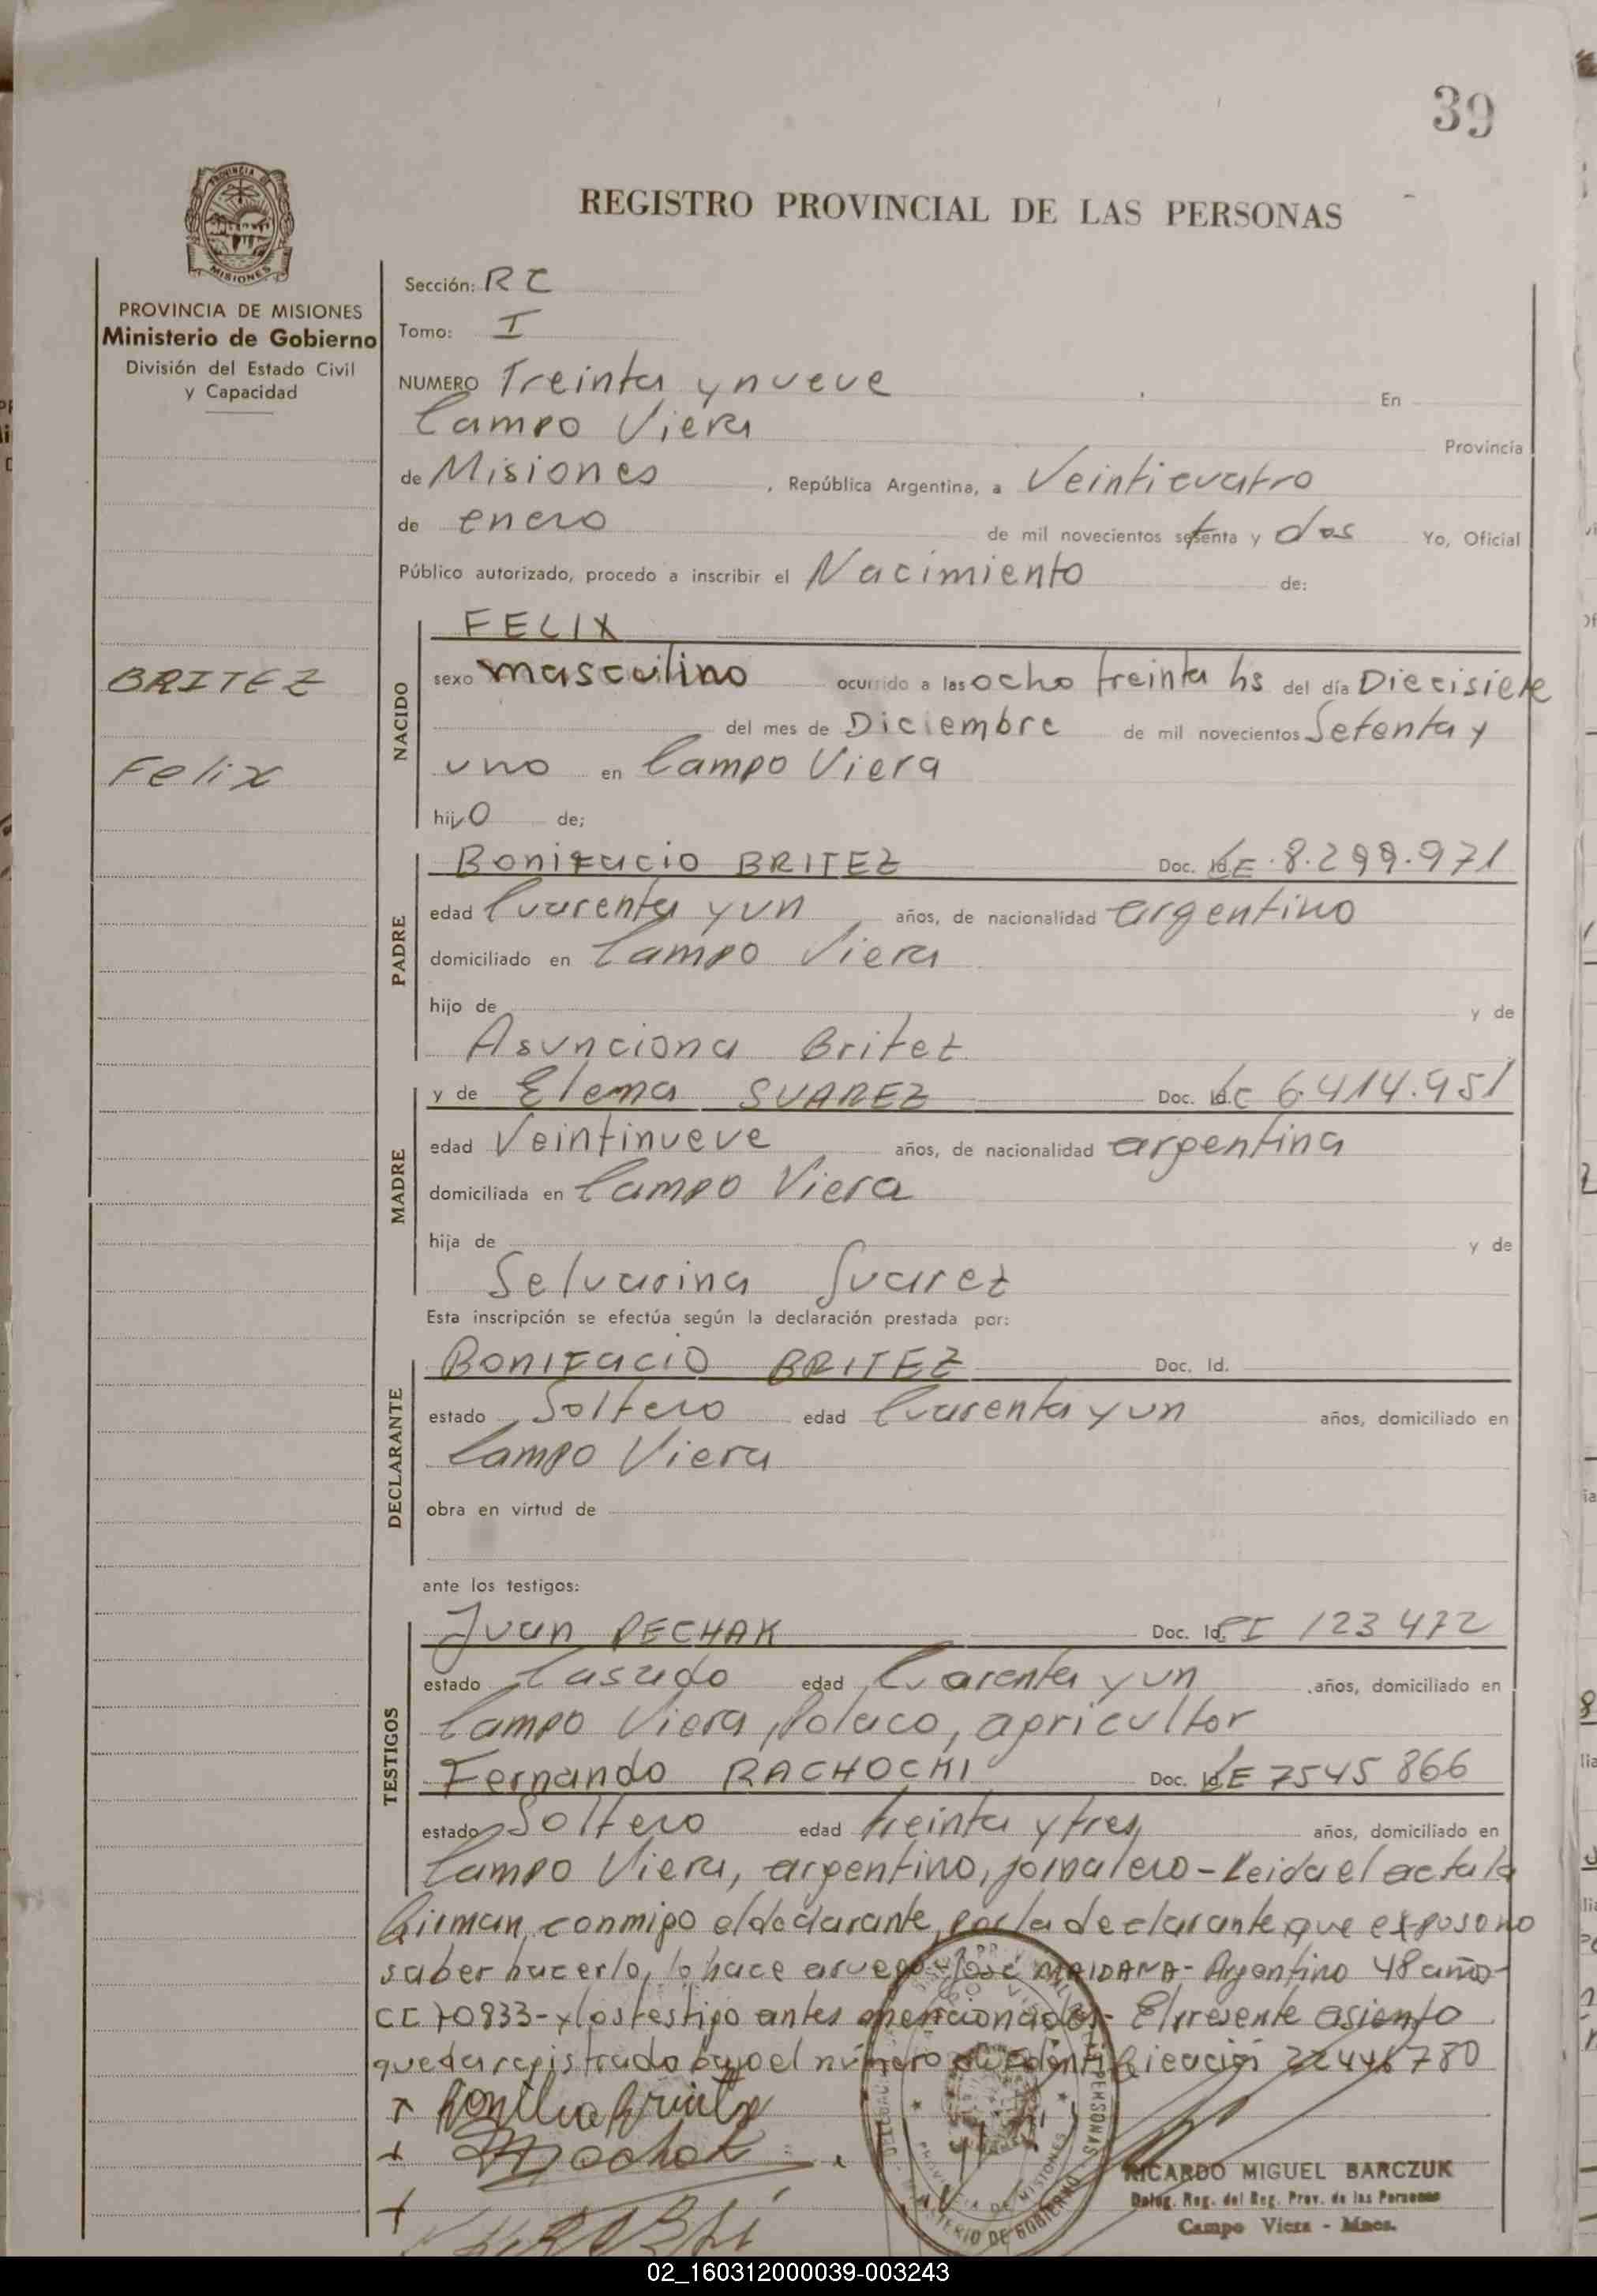 39
REGISTRO PROVINCIAL DE LAS PERSONAS
PROVINCIA DE MISIONES
Ministerio de Gobierno
División del Estado Civil
y Capacidad
BRITEZ
Felix
Sección: RC
Tomo: I
NUMERO Treinta y nueve En
Campo Viera Provincia
de Misiones, República Argentina, a Veinticuatro
de enero de mil novecientos setenta y dos Yo, Oficial
Público autorizado, procedo a inscribir el Nacimiento de:
NACIDO
FELIX
sexo masculino ocurrido a las ocho treinta hs del día Diecisiete
del mes de Diciembre de mil novecientos Setenta y
uno en Campo Viera
hijo de;
PADRE
Bonifacio BRITEZ Doc. Id. LE 8.299.971
edad Cuarenta y un años, de nacionalidad argentino
domiciliado en Campo Viera
hijo de y de
Asunciona Britez
MADRE
y de Elena SUAREZ Doc. Id. LC 6.414.951
edad Veintinueve años, de nacionalidad argentina
domiciliada en Campo Viera
hija de y de
Selvarina Suarez
Esta inscripción se efectúa según la declaración prestada por:
DECLARANTE
Bonifacio BRITEZ Doc. Id.
estado Soltero edad Cuarenta y un años, domiciliado en
Campo Viera
obra en virtud de
ante los testigos:
TESTIGOS
Juan PECHAK Doc. Id. CI 123472
estado Casado edad Cuarenta y un años, domiciliado en
Campo Viera, Polaco, agricultor
Fernando RACHOCKI Doc. Id. LE 7545866
estado Soltero edad treinta y tres, años, domiciliado en
Campo Viera, argentino, jornalero - Leida el acta la
firman conmigo el declarante, por la declarante que expuso no
saber hacerlo, lo hace a ruego José MAIDANA - Argentino 48 año-
CI 70833 - y los testigo antes mencionados - El presente asiento
queda registrado bajo el número de Identificación 22446780
RICARDO MIGUEL BARCZUK
Deleg. Reg. del Reg. Prov. de las Personas
Campo Viera - Mnes.
02_160312000039-003243